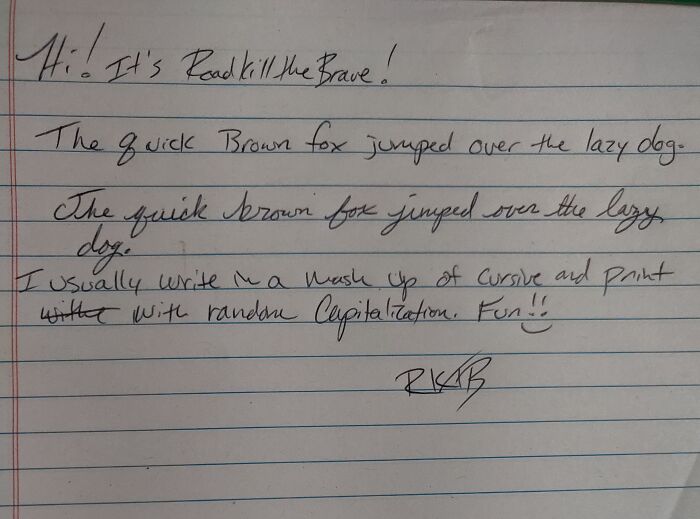 Hi! It's Roadkill the Brave!
The quick Brown fox jumped over the lazy dog.
The quick brown fox jumped over the lazy
dog.
I usually write in a mash up of cursive and print
with random Capitalization. Fun!!
RKTB